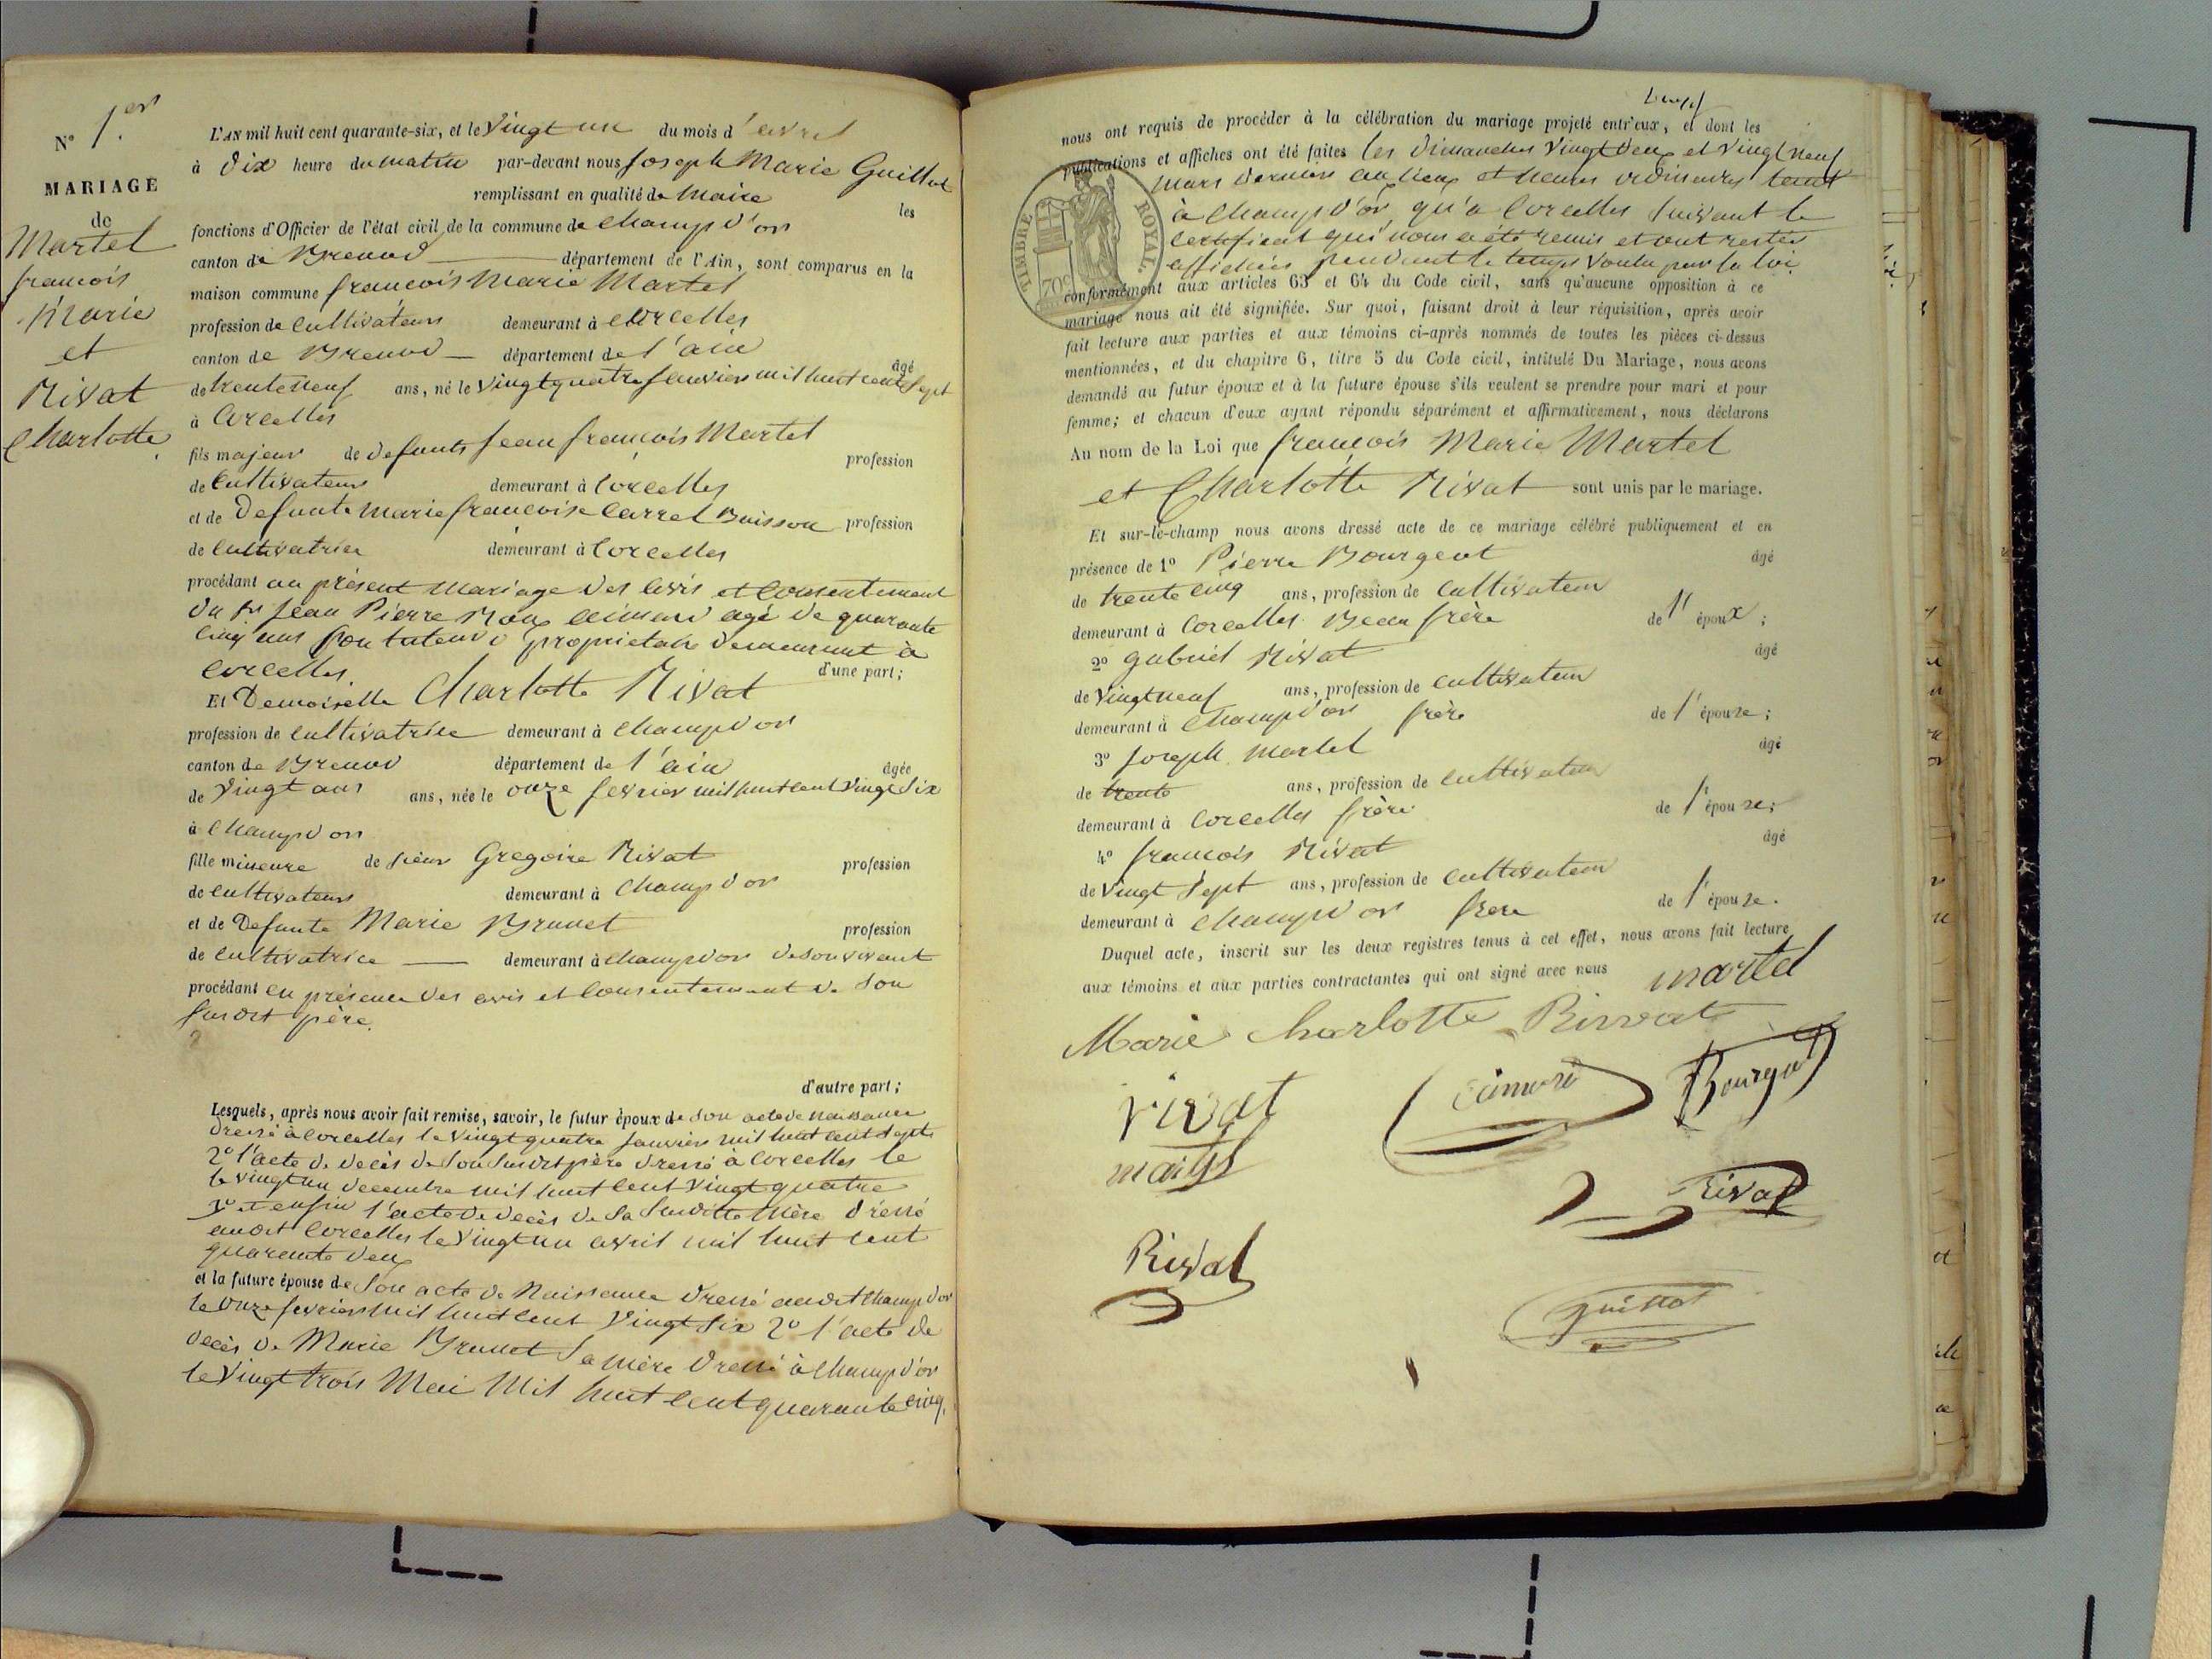 N° 1.er
MARIAGE
de
Martel
francois
Marie
et
Rivat
Charlotte.
L'AN mil huit cent quarante-six, et le Vingt un du mois d'avril
à dix heure du matin par-devant nous Joseph Marie Guillot
remplissant en qualité de Maire les
fonctions d'Officier de l'état civil de la commune de Champd'or
canton de Brenod département de l'Ain, sont comparus en la
maison commune francois Marie Martel
profession de Cultivateur demeurant à Corcelles
canton de Brenod département de l'ain âgé
de trente neuf ans, né le Vingt quatre janvier mil huit cent Sept
à Corcelles
fils majeur de defunts Jean francois Martel profession
de Cultivateur demeurant à Corcelles
et de Defunte Marie francoise Carrel Buisson profession
de Cultivatrice demeurant à Corcelles
procédant au présent Mariage des avis et Consentement
du sr Jean Pierre agé de quarante
cinq ans son tuteur propriétaire demeurant à
Corcelles. d'une part;
Et Demoiselle Charlotte Rivat
profession de cultivatrice demeurant à Champd'or
canton de Brenod département de l'ain âgée
de Vingt ans ans, née le onze fevrier mil huit cent Vingt Six
à Champd'or
fille mineure de sieur Gregoire Rivat profession
de cultivateur demeurant à Champd'or
et de Defunte Marie Brunet profession
de Cultivatrice demeurant à Champd'or de son vivant
procédant en présence des avis et Consentement de Son
susdit père.
d'autre part;
Lesquels, après nous avoir fait remise, savoir, le futur époux de Son acte de naissance
dressé à Corcelles le Vingt quatre Janvier mil huit cent Sept
2° l'acte de décès de Son Susdit père dressé à Corcelles le
le vingt un decembre mil huit cent Vingt quatre
3° et enfin l'acte de décès de Sa Susditte Mère dréssé
audit Corcelles le Vingt un avril mil huit cent
quarante deux
et la future épouse de Son acte de Naissance dressé audit Champd'or
le Onze fevrier Mil huit cent Vingt Six 2° l'acte de
décès de Marie Brunet Sa Mère dressé à Champd'or
le Vingt trois Mai Mil huit cent quarante cinq.
nous ont requis de procéder à la célébration du mariage projeté entr'eux, et dont les
publications et affiches ont été faites les dimanches Vingt deux et Vingt neuf
Mars dernier aux lieux et heures ordinaires tant
à Champd'or qu'à Corcelles Suivant le
Certificat qui nous a été remis et ont restés
affichés pendant le temps Voulu par la loi
TIMBRE ROYAL.
70c
conformément aux articles 63 et 64 du Code civil, sans qu'aucune opposition à ce
mariage nous ait été signifiée. Sur quoi, faisant droit à leur réquisition, après avoir
fait lecture aux parties et aux témoins ci-après nommés de toutes les pièces ci-dessus
mentionnées, et du chapitre 6, titre 5 du Code civil, intitulé Du Mariage, nous avons
demandé au futur époux et à la future épouse s'ils veulent se prendre pour mari et pour
femme; et chacun d'eux ayant répondu séparément et affirmativement, nous déclarons
Au nom de la Loi que francois Marie Martel
et Charlotte Rivat sont unis par le mariage.
Et sur-le-champ nous avons dressé acte de ce mariage célébré publiquement et en
présence de 1° Pierre Bourgeot âgé
de trente cinq ans, profession de Cultivateur
demeurant à Corcelles Beau frère de l' époux;
2° gabriel Rivat âgé
de Vingt neuf ans, profession de Cultivateur
demeurant à Champd'or frère de l'épouse;
3° Joseph Martel âgé
de trente ans, profession de cultivateur
demeurant à Corcelles frère de l'épouse;
4° francois Rivat âgé
de Vingt Sept ans, profession de Cultivateur
demeurant à Champd'or frere de l'épouse.
Duquel acte, inscrit sur les deux registres tenus à cet effet, nous avons fait lecture
aux témoins et aux parties contractantes qui ont signé avec nous martel
Marie Charlotte Rivvat
rivat
Rival
Rivat
guillot